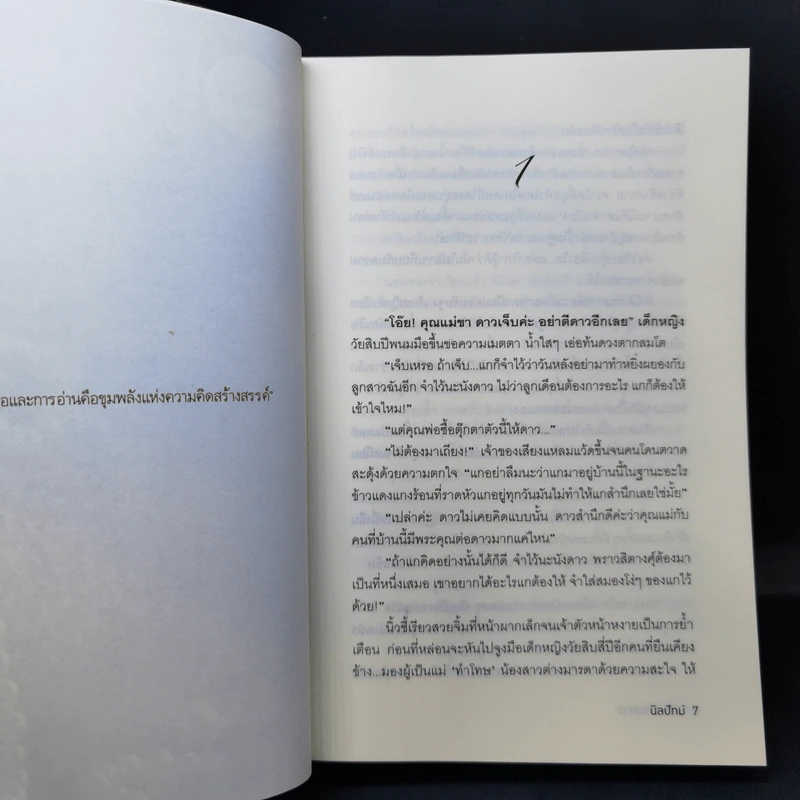 อและการอ่านคือขุมพลังแห่งความคิดสร้างสรรค์"
1
"โอ๊ย! คุณแม่ขา ดาวเจ็บค่ะ อย่าตีดาวอีกเลย" เด็กหญิง
วัยสิบปีพนมมือขึ้นขอความเมตตา น้ำใสๆ เอ่อท้นดวงตากลมโต
"เจ็บเหรอ ถ้าเจ็บ...แกก็จำไว้ว่าวันหลังอย่ามาทำหยิ่งผยองกับ
ลูกสาวฉันอีก จำไว้นะนังดาว ไม่ว่าลูกเดือนต้องการอะไร แกก็ต้องให้
เข้าใจไหม!"
"แต่คุณพ่อซื้อตุ๊กตาตัวนี้ให้ดาว..."
"ไม่ต้องมาเถียง!" เจ้าของเสียงแหลมแว้ดขึ้นจนคนโดนตวาด
สะดุ้งด้วยความตกใจ "แกอย่าลืมนะว่าแกมาอยู่บ้านนี้ในฐานะอะไร
ข้าวแดงแกงร้อนที่ราดหัวแกอยู่ทุกวันมันไม่ทำให้แกสำนึกเลยใช่มั้ย"
"เปล่าค่ะ ดาวไม่เคยคิดแบบนั้น ดาวสำนึกดีค่ะว่าคุณแม่กับ
คนที่บ้านนี้มีพระคุณต่อดาวมากแค่ไหน"
"ถ้าแกคิดอย่างนั้นได้ก็ดี จำไว้นะนังดาว พราวสิตางศุ์ต้องมา
เป็นที่หนึ่งเสมอ เขาอยากได้อะไรแกต้องให้ จำใส่สมองโง่ๆ ของแกไว้
ด้วย!"
นิ้วชี้เรียวสวยจิ้มที่หน้าผากเล็กจนเจ้าตัวหน้าหงายเป็นการย้ำ
เตือน ก่อนที่หล่อนจะหันไปจูงมือเด็กหญิงวัยสิบสี่ปีอีกคนที่ยืนเคียง
ข้าง...มองผู้เป็นแม่ 'ทำโทษ' น้องสาวต่างมารดาด้วยความสะใจ ให้
นิลปัทม์ 7